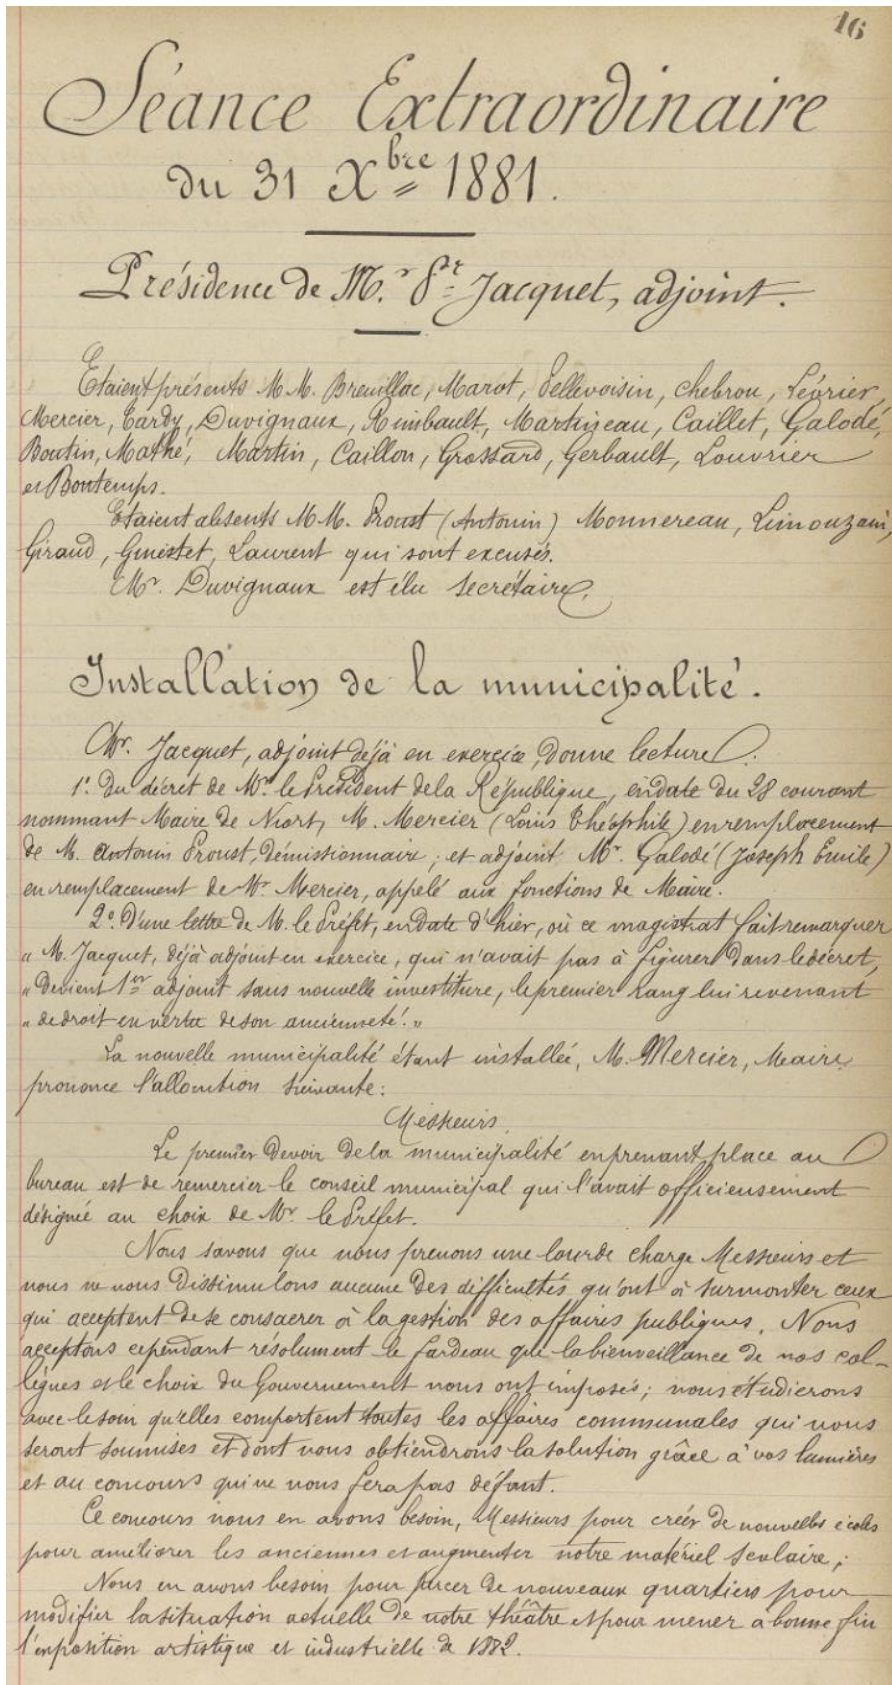 16
Séance Extraordinaire
du 31 Xbre 1881.
Présidence de Mr. Pre Jacquet, adjoint.
Etaient présents MM. Breuillac, Marot, Dellevoisin, Chebrou, Lévrier,
Mercier, Tardy, Duvignaux, Rimbault, Martineau, Caillet, Galodé,
Boutin, Mathé, Martin, Caillon, Grossard, Gerbault, Louvrier
et Bontemps.
Etaient absents MM. Proust (Antonin) Monnereau, Limouzain,
Giraud, Ginestet, Laurent qui sont excusés.
Mr. Duvignaux est élu secrétaire.
Installation de la municipalité.
Mr. Jacquet, adjoint déjà en exercice, donne lecture :
1º. Du décret de Mr. le Président de la République, en date du 28 courant
nommant Maire de Niort, M. Mercier (Louis Théophile) en remplacement
de M. Antonin Proust, démissionnaire ; et adjoint, Mr. Galodé (Joseph Emile)
en remplacement de Mr. Mercier, appelé aux fonctions de Maire.
2º. D'une lettre de M. le Préfet, en date d'hier, où ce magistrat fait remarquer
" M. Jacquet, déjà adjoint en exercice, qui n'avait pas à figurer dans le décret,
" devient 1er adjoint sans nouvelle investiture, le premier rang lui revenant
" de droit en vertu de son ancienneté. "
La nouvelle municipalité étant installée, M. Mercier, Maire
prononce l'allocution suivante :
Messieurs,
Le premier devoir de la municipalité en prenant place au
bureau est de remercier le conseil municipal qui l'avait officieusement
désignée au choix de Mr. le Préfet.
Nous savons que nous prenons une lourde charge Messieurs et
nous ne nous dissimulons aucune des difficultés qu'ont à surmonter ceux
qui acceptent de se consacrer à la gestion des affaires publiques. Nous
acceptons cependant résolument le fardeau que la bienveillance de nos col-
lègues et le choix du Gouvernement nous ont imposés ; nous étudierons
avec le soin qu'elles comportent toutes les affaires communales qui nous
seront soumises et dont nous obtiendrons la solution grâce à vos lumières
et au concours qui ne nous fera pas défaut.
Ce concours nous en avons besoin, Messieurs pour créer de nouvelles écoles
pour améliorer les anciennes et augmenter notre matériel scolaire ;
Nous en avons besoin pour percer de nouveaux quartiers pour
modifier la situation actuelle de notre théâtre et pour mener à bonne fin
l'exposition artistique et industrielle de 1882.